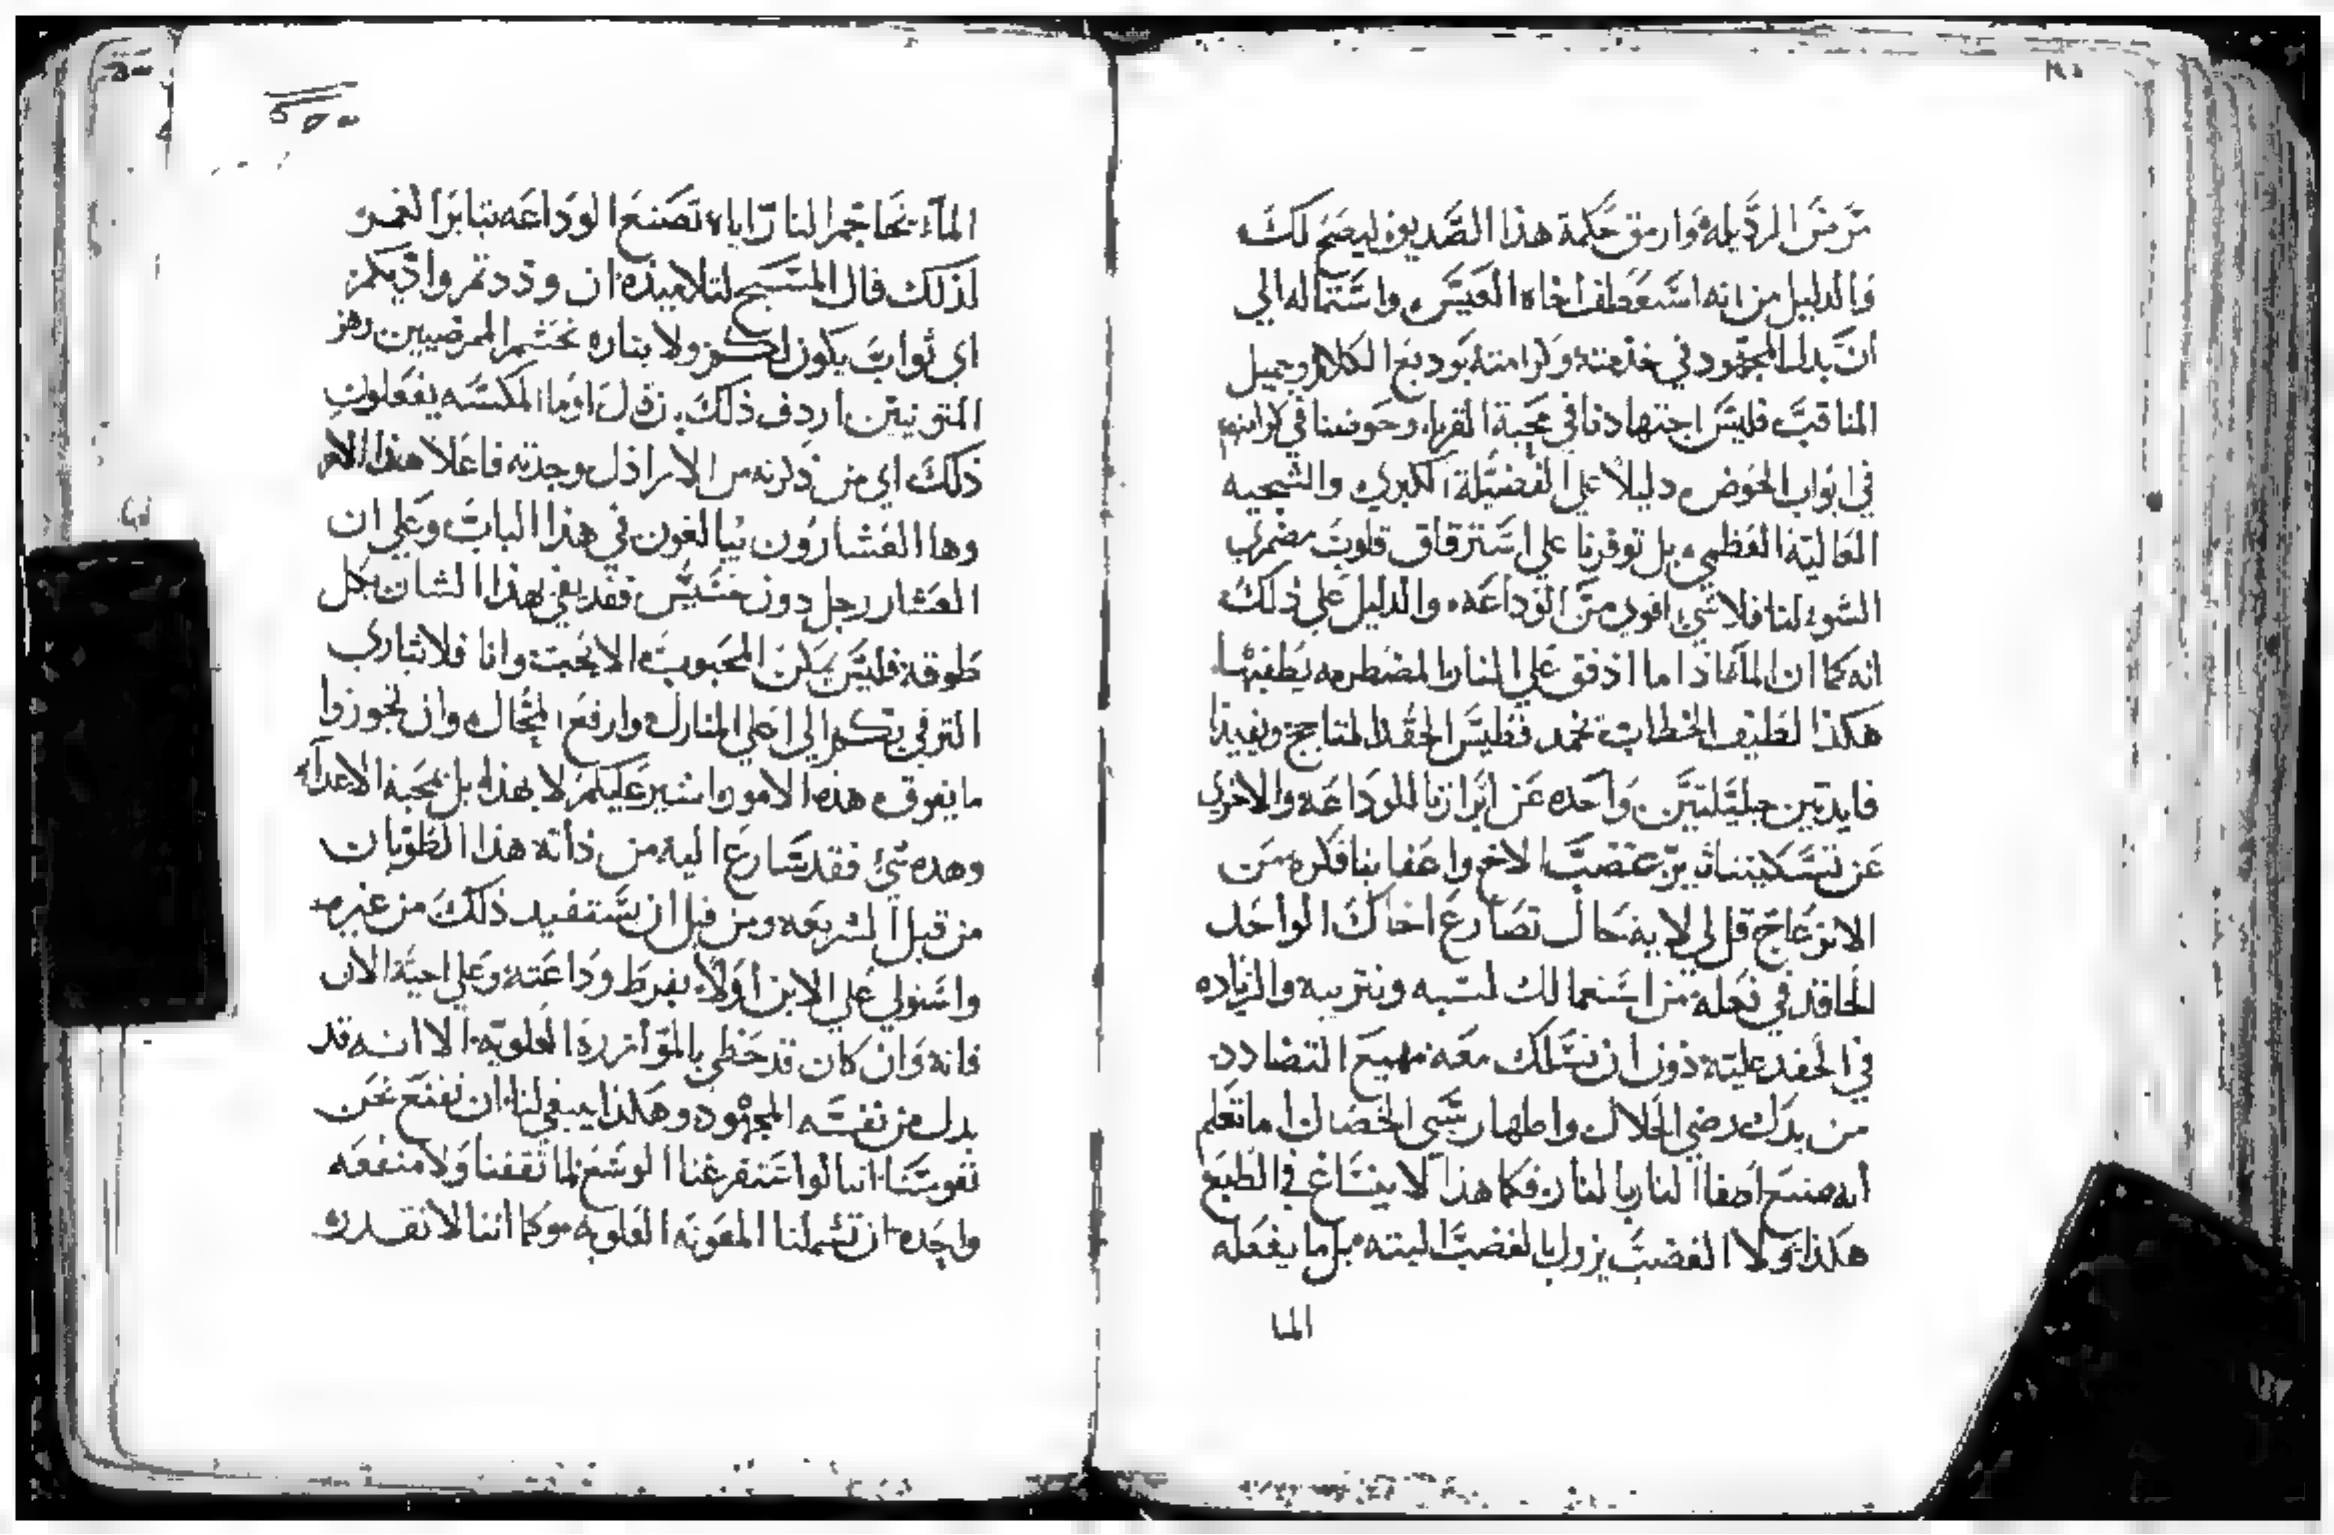 من الرذيله وارمق حكمة هذا الصديق ليصح لك
والدليل من انه استعطف اخاه العيس واستماله الي
ان بدل المجهود في خدمته وكرامته بوديع الكلام وجميل
المناقب فليس اجتهادنا في محبة القرباء وخوضنا في كرامتهم
في ابواب الخوض دليلا علي الفضيلة الكبري والشجيه
العالية العظمي بل توفرنا علي استرقاق قلوب مضمري
السوء لنا فلا شي اقوي من الوداعه والدليل علي ذلك
انه كما ان الماء اذا ما ادفق علي النار المضطرمه يطفيها
هكذا لطيف الخطاب تخمد فطيس الحقد المتاجج ويفيدنا
فايدتين جليلتين واحده عن ابرازنا للوداعة والاخري
عن تسكيننا غضب الاخ واعفاينا فكره من
الانزعاج قل لي لاية حال تصارع اخاك الواحد
الحاقد في فعله من استعمالك لسبه وبتربيه والزياده
في الحقد عليه دون ان تسلك معه مهيع التضادد
من بدلك رضي الخلال واظهار سي الخصال اما تعلم
انه صنع اطفا النار بالنار فكما هذا لا ينساغ في الطبع
هكذا ولا الغضب يزول بالغضب البته بل ما يفعله
الما
الماء نحا جمر النار اياه تصنع الوداعه
لذلك قال المسيح لتلاميذه ان وددتم وادّيكم
اي ثواب يكون لكم ولا بتاره نحتشم المرضيين
المتونيين اردف ذلك بقوله اوما المكسه يفعلون
ذلك اي من ذكرته من الاراذل وجدته فاعلا هذا الامر
وها العشارون يبالغون في هذا الباب وعلي ان
العشار رجل دون خسيس فقد يفي بهذا الشان بكل
طوقه فليس يمكن المحبوب الا يحب وانا فلايثاري
الترقي بكم الي اعلي المنازل وارفع المحال وان تحوزوا
ما يفوق هذه الامور اشير عليكم لا بهذا بل بمحبة الاعداء
وهده شي فقد سارع اليه من ذاته هذا الطوبان
من قبل الشريعه ومن قبل ان يستفيد ذلك من غيره
واستولي علي الابن اولا بفرط وداعته وعلي احية الان
فانه وان كان قد حظي بالموأزرة العلويه الا انه قد
بدل من نفسه المجهود وهكذا ينبغي لنا ان نقنع نحن
نفوسنا اننا لو استفرغنا الوسع لما ثقفنا ولا منفعه
واحده ان تشملنا المعونه العلويه وكما اننا لا نقدر